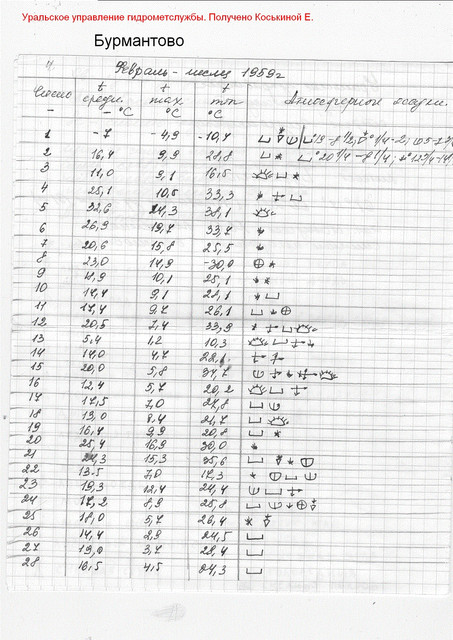 Уральское управление гидрометслужбы. Получено Коськиной Е.
Бурмантово
Февраль - месяц 1959г
Число t средн. t max t min Атмосферные осадки.
- - °C °C °C
1 -7 -4,9 -10,7
2 16,4 9,9 28,8
3 11,0 9,1 16,5
4 25,1 10,5 33,3
5 32,6 24,3 38,1
6 26,9 19,7 33,7
7 20,6 15,8 25,5
8 23,0 14,9 -30,0
9 18,9 10,1 25,1
10 14,4 9,1 22,1
11 17,4 9,7 26,1
12 20,5 7,4 33,9
13 5,4 1,2 10,3
14 14,0 4,7
15 20,0 5,8 34,7
16 12,4 5,7 20,2
17 17,5 7,0 27,8
18 13,0 8,4 21,7
19 16,4 9,9 20,8
20 25,4 16,9 30,0
21 24,3 15,3 35,6
22 13.5 7,0 17,3
23 19,3 12,4 24,4
24 17,2 8,9 25,8
25 18,0 5,7 26,4
26 14,4 2,9 24,5
27 19,0 3,7 28,4
28 16,5 4,5 24,3